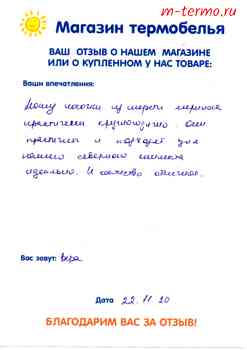 m-termo.ru
Магазин термобелья
ВАШ ОТЗЫВ О НАШЕМ МАГАЗИНЕ
ИЛИ О КУПЛЕННОМ У НАС ТОВАРЕ:
Ваши впечатления:
Ношу носочки из шерсти мериноса
практически круглогодично. Они
практичны и подходят для
нашего северного климата
идеально. И качество отличное.
Вас зовут: Вера
Дата 22.11.20
БЛАГОДАРИМ ВАС ЗА ОТЗЫВ!